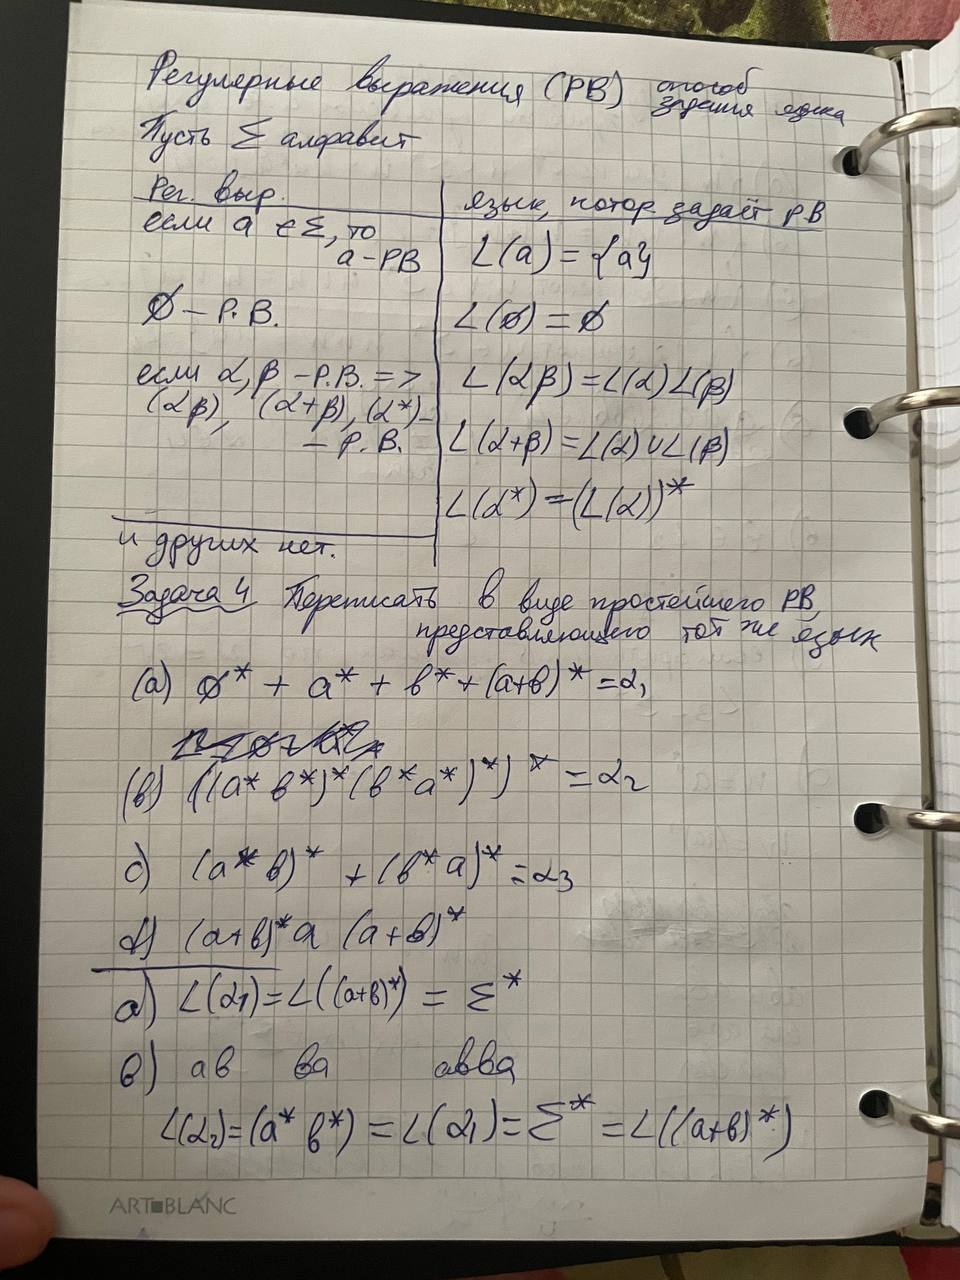 Регулярные выражения (РВ) способ
задания языка
Пусть Σ алфавит
Рег. выр.
язык, котор. задаёт РВ
если a ∈ Σ, то
a – РВ
L(a) = {a}
∅ – Р.В.
L(∅) = ∅
если α, β – Р.В. =>
(αβ), (α+β), (α*) –
– Р.В.
L(αβ) = L(α)L(β)
L(α+β) = L(α) ∪ L(β)
L(α*) = (L(α))*
и других нет.
Задача 4 Переписать в виде простейшего РВ,
представляющего тот же язык
(a) ∅* + a* + b* + (a+b)* = α₁
(b) ((a* b*)* (b* a*)*)* = α₂
c) (a* b)* + (b* a)* = α₃
d) (a+b)* a (a+b)*
a) L(α₁) = L((a+b)*) = Σ*
b) ab ba abba
L(α₂) = (a* b*) = L(α₁) = Σ* = L((a+b)*)
ART■BLANC